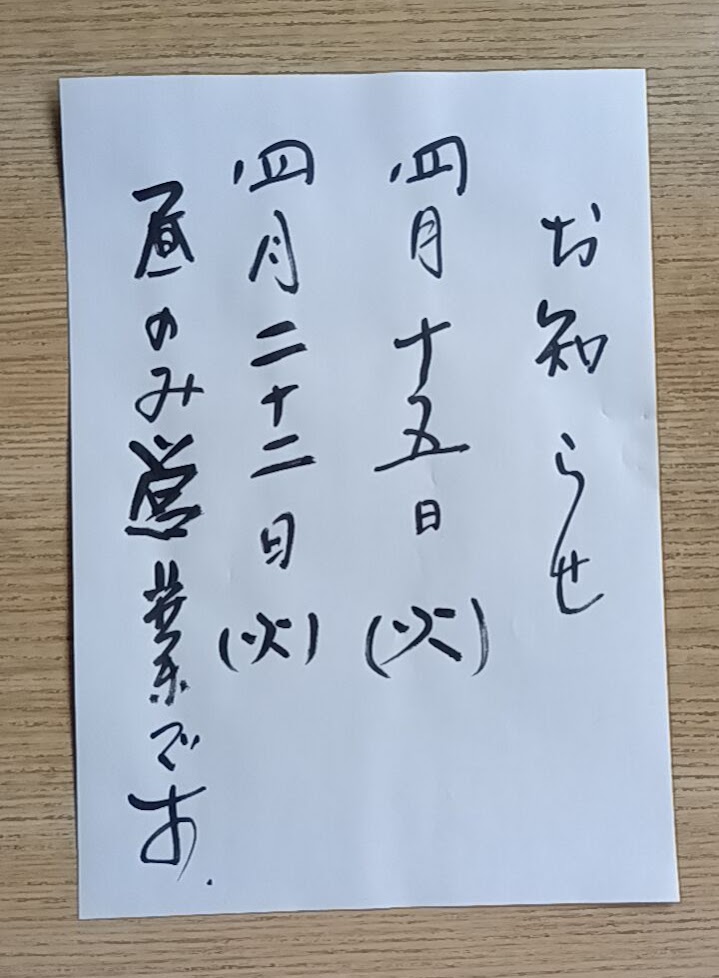 お知らせ
四月十五日(火)
四月二十二日(火)
昼のみ営業です.